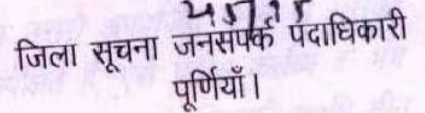 जिला सूचना जनसपर्क पदाधिकारी
पूर्णियाँ।